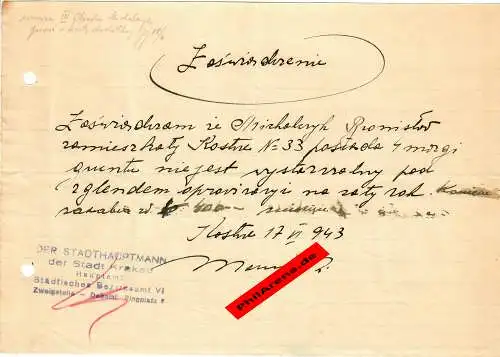 Zaświadczenie
Zaświadczam że Michalczyk Bronisław
zamieszkały Kostrze № 33 posiada 4 morgi
gruntu niejest wystarczalny pod
zglendem aprowizacji na cały rok
zarabia zł
Kostrze 17 VI 943
DER STADTHAUPTMANN
der Stadt Krakau
Hauptamt
Städtisches Bezirksamt VI
Zweigstelle - Debniki Ringplatz
PhilArena.de